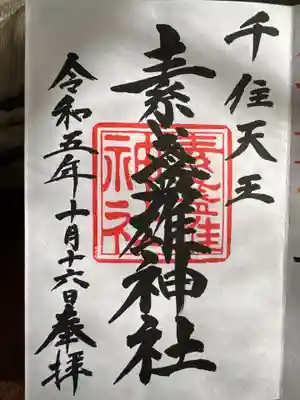 千住天王
素盞雄神社
令和五年十月十六日奉拝
素盞雄
神社